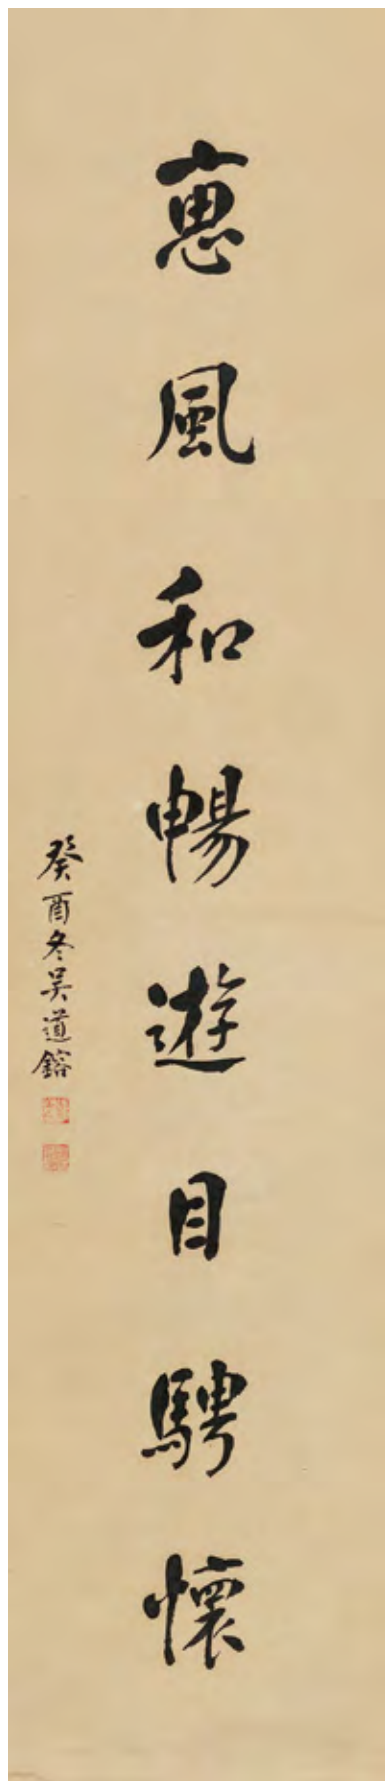 惠風和暢遊目騁懷
癸酉冬吳道鎔